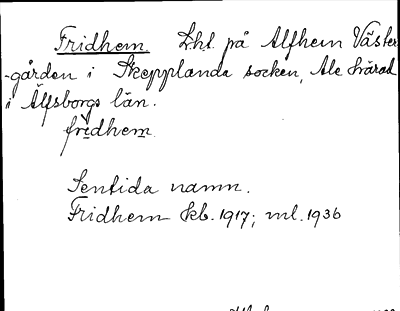 Fridhem. Lht. på Alfhem Väster
-gården i Skepplanda socken, Ale härad
i Älfsborgs län.
fridhem
Sentida namn.
Fridhem kb. 1917; ml. 1936